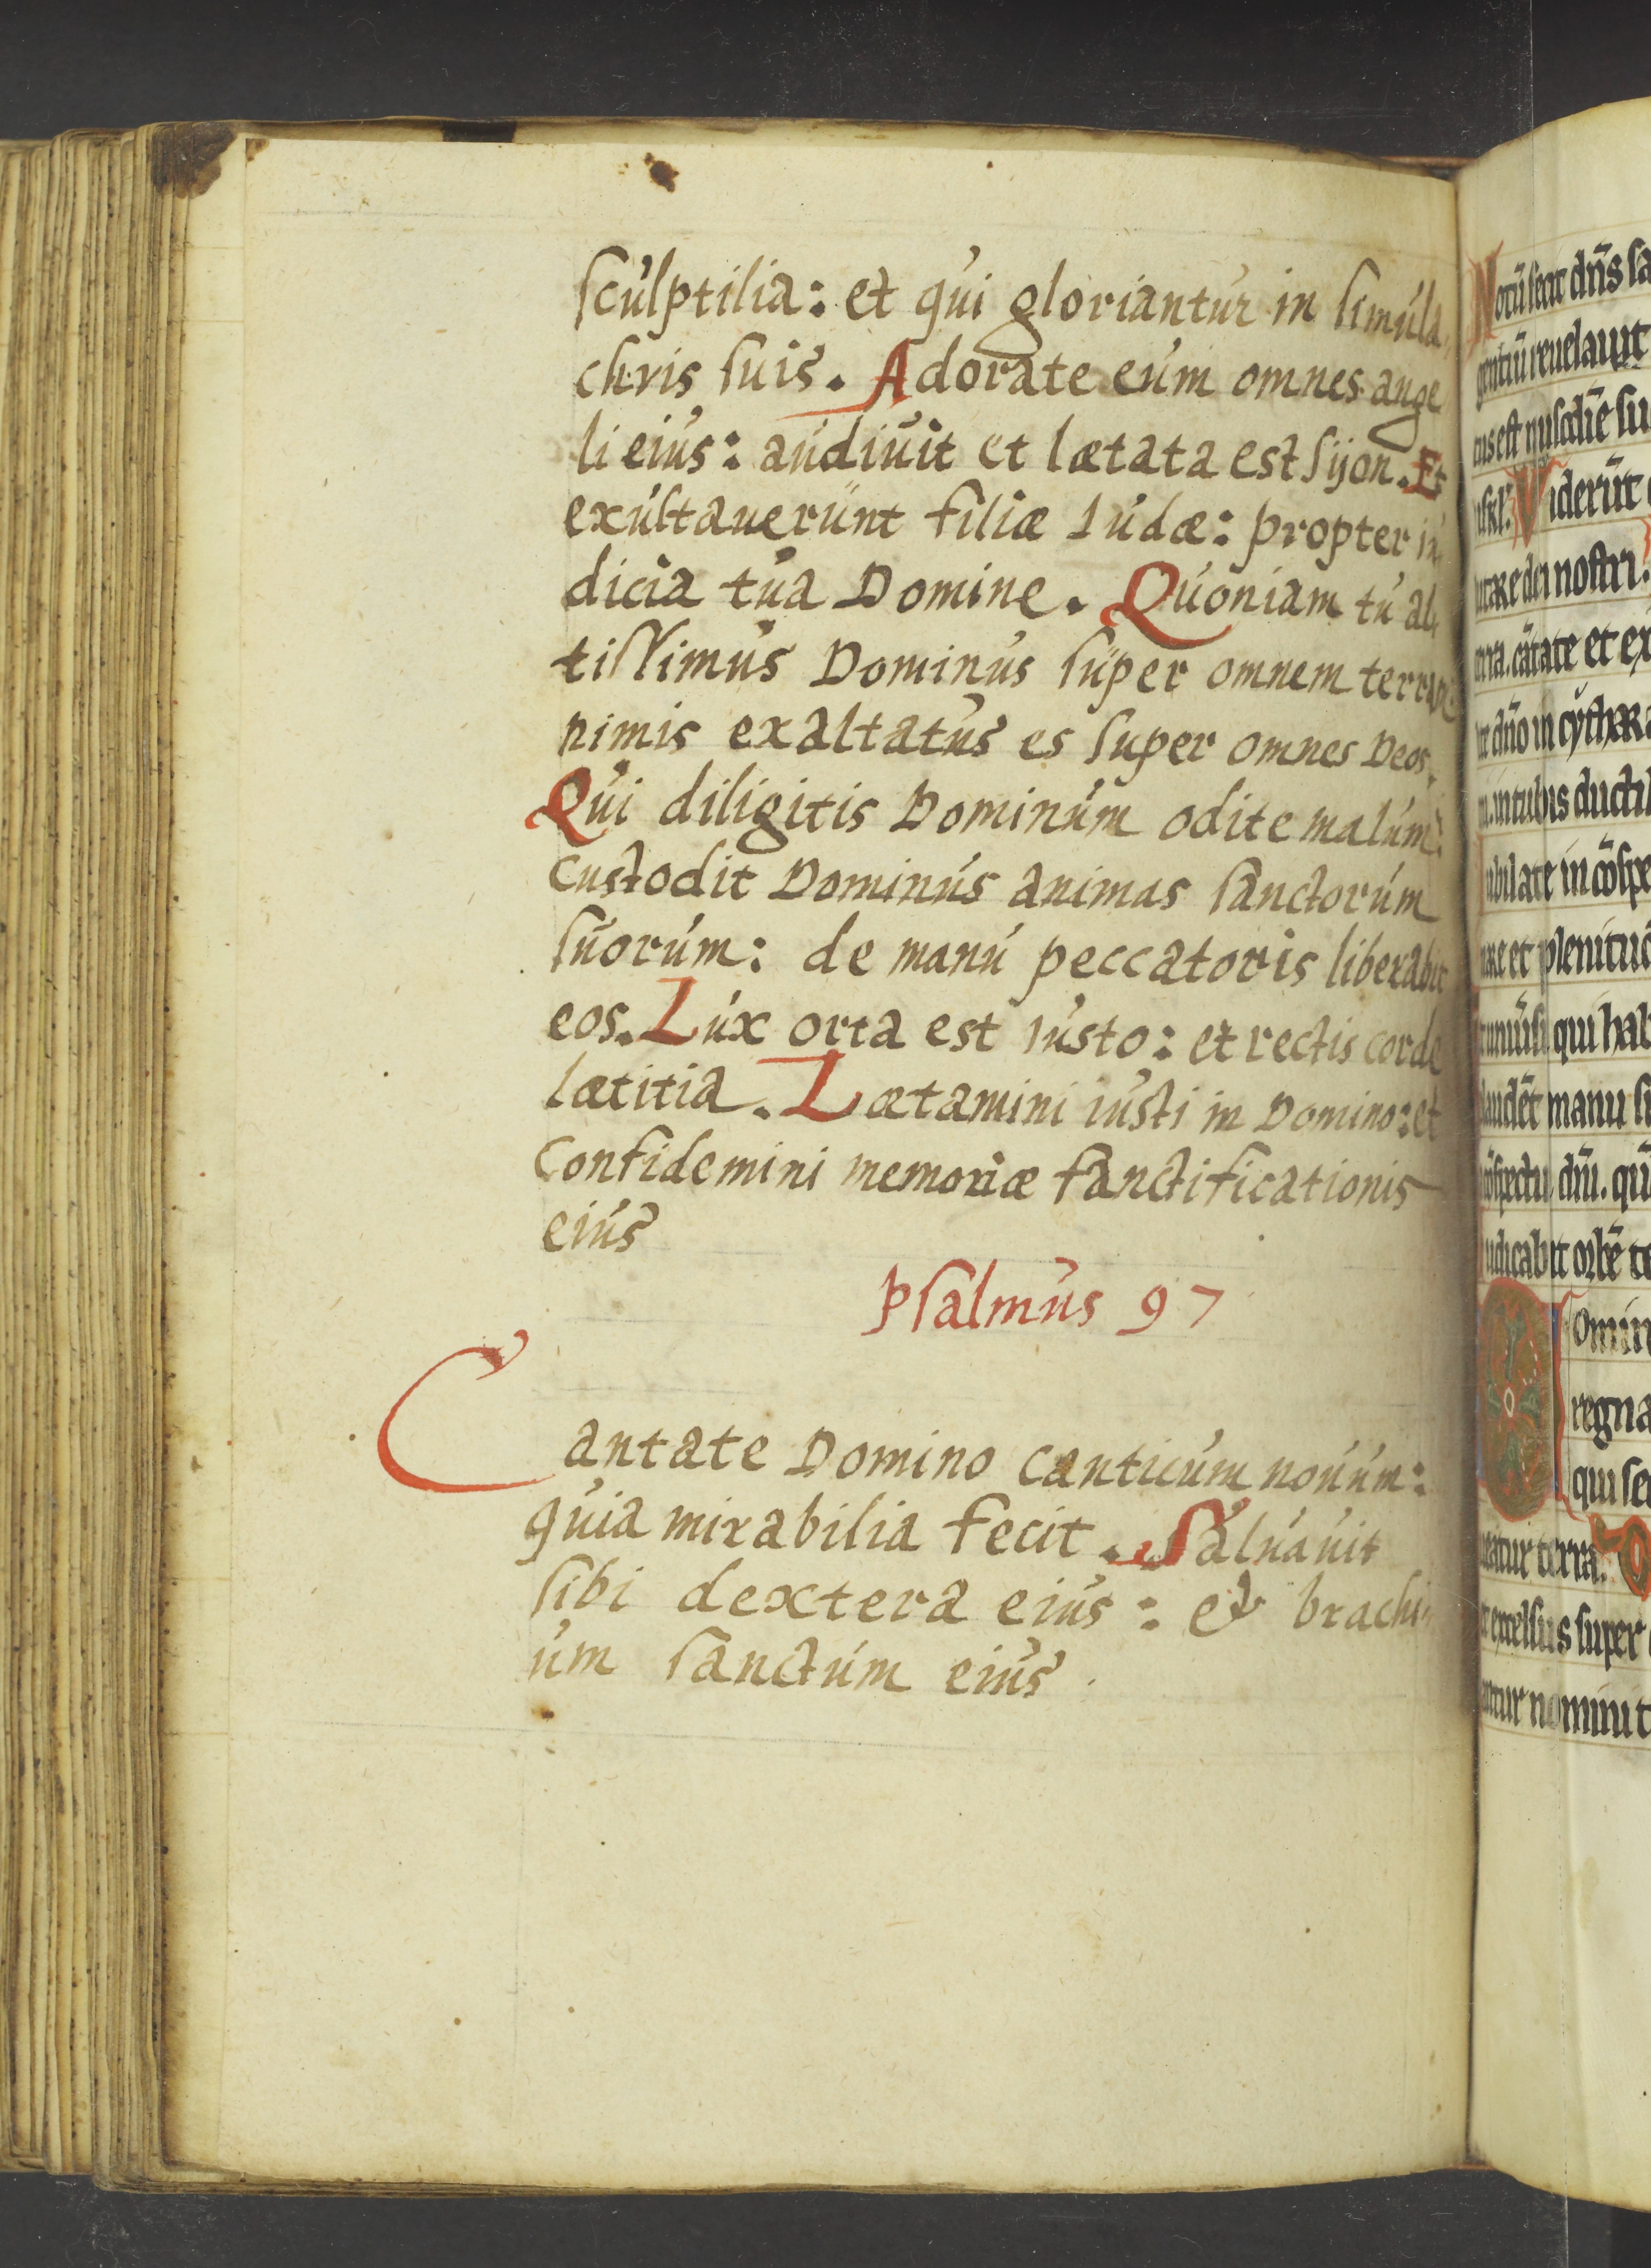 sculptilia: et qui gloriantur in simula
chris suis. Adorate eum omnes ange
li eius: audiuit et lætata est sijon. Et
exultauerunt filiæ Iudæ: propter iu
dicia tua Domine. Quoniam tu al
tissimus Dominus super omnem terram
nimis exaltatus es super omnes Deos.
Qui diligitis Dominum odite malum:
custodit Dominus animas sanctorum
suorum: de manu peccatoris liberabit
eos. Lux orta est iusto: et rectis corde
lætitia. Lætamini iusti in Domino: et
confidemini memoriæ sanctificationis
eius
Psalmus 97
Cantate Domino canticum nouum:
quia mirabilia fecit. Saluauit
sibi dextera eius: & brachi
um sanctum eius.
Notū fecit dn̄s sa
gentiū reuelauit
est su
Viderūt
dei nostri.
cātate et ex
dn̄o in cythara
in tubis ductil
ubilate in cōspe
et plenitud
qui hab
manu si
dn̄i. qn̄
udicabit orbē te
Domin
regna
qui se
terra.
excelsus super
nomini t